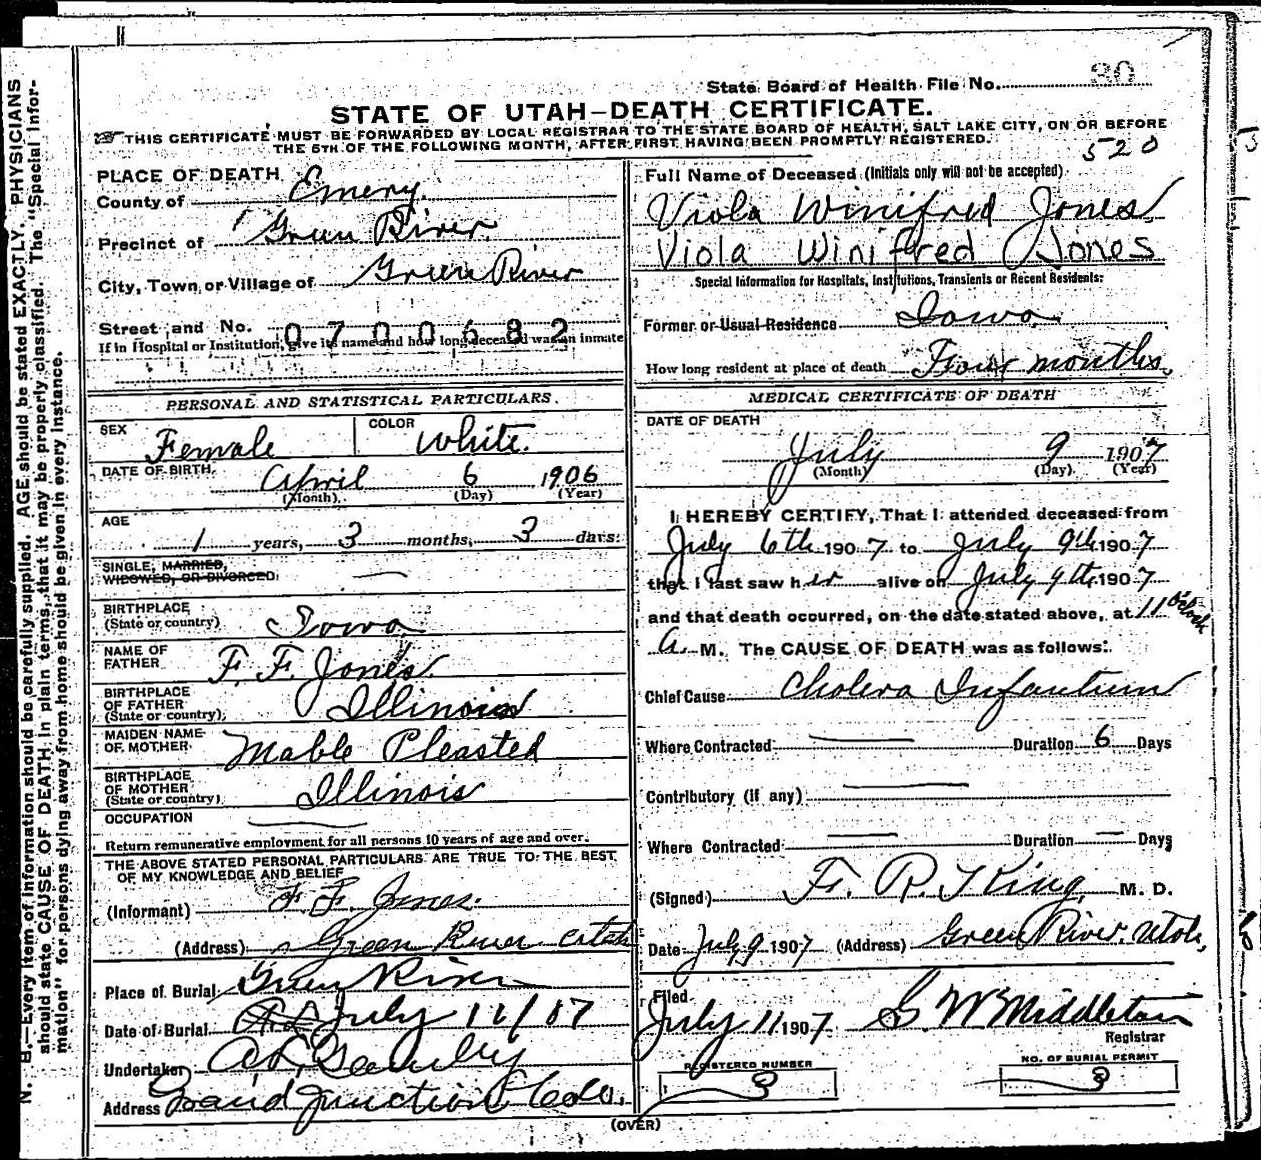 State Board of Health File No. 30
STATE OF UTAH—DEATH CERTIFICATE.
THIS CERTIFICATE MUST BE FORWARDED BY LOCAL REGISTRAR TO THE STATE BOARD OF HEALTH, SALT LAKE CITY, ON OR BEFORE
THE 5TH OF THE FOLLOWING MONTH, AFTER FIRST HAVING BEEN PROMPTLY REGISTERED.
520
PLACE OF DEATH
County of Emery.
Precinct of Green River
City, Town or Village of Green River
Street and No. 0700682
If in Hospital or Institution, give its name and how long deceased was an inmate
PERSONAL AND STATISTICAL PARTICULARS.
SEX Female COLOR White.
DATE OF BIRTH April 6 1906
(Month) (Day) (Year)
AGE 1 years, 3 months, 3 days
SINGLE, MARRIED,
WIDOWED, OR DIVORCED —
BIRTHPLACE
(State or country) Iowa
NAME OF
FATHER F. F. Jones.
BIRTHPLACE
OF FATHER
(State or country) Illinois
MAIDEN NAME
OF MOTHER Mable Pleasted
BIRTHPLACE
OF MOTHER
(State or country) Illinois
OCCUPATION —
Return remunerative employment for all persons 10 years of age and over.
THE ABOVE STATED PERSONAL PARTICULARS ARE TRUE TO THE BEST
OF MY KNOWLEDGE AND BELIEF
(Informant) F. F. Jones.
(Address) Green River Utah
Place of Burial Green River
Date of Burial July 11/07
Undertaker
Address Grand Junction Colo.
Full Name of Deceased (Initials only will not be accepted)
Viola Winifred Jones
Viola Winifred Jones
Special Information for Hospitals, Institutions, Transients or Recent Residents:
Former or Usual Residence Iowa
How long resident at place of death Four months.
MEDICAL CERTIFICATE OF DEATH
DATE OF DEATH
July 9 1907
(Month) (Day) (Year)
I HEREBY CERTIFY, That I attended deceased from
July 6th 1907 to July 9th 1907
that I last saw her alive on July 9th 1907
and that death occurred, on the date stated above, at 11 o'clock
A. M. The CAUSE OF DEATH was as follows:
Chief Cause Cholera Infantum
Where Contracted — Duration 6 Days
Contributory (if any) —
Where Contracted — Duration — Days
(Signed) F. R. King, M. D.
Date July 9 1907 (Address) Green River, Utah,
Filed
July 11 1907 S. W. Middleton
Registrar
REGISTERED NUMBER 3
NO. OF BURIAL PERMIT 3
(OVER)
N. B.—Every item of information should be carefully supplied. AGE should be stated EXACTLY. PHYSICIANS
should state CAUSE OF DEATH in plain terms, that it may be properly classified. The "Special Infor-
mation" for persons dying away from home should be given in every instance.